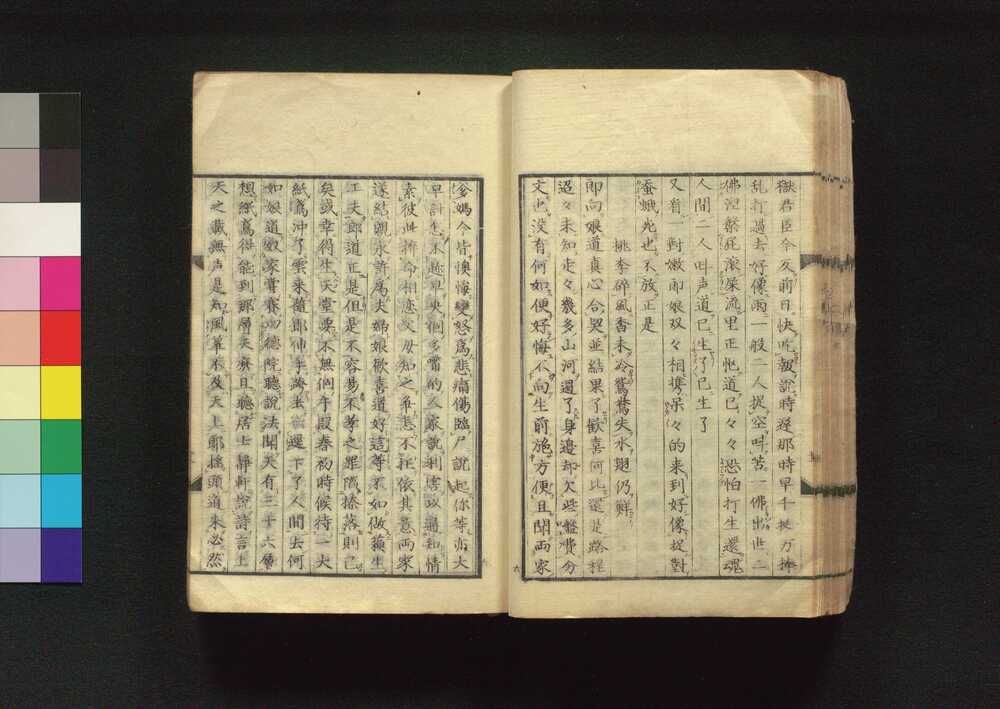 獄君臣今夜前日快吃報説時遅那時早千挺万捧
乱打過去好像雨一般二人捉空叫苦一佛出世二
佛涅槃屁滾屎流里正他道已々々恐怕打生還魂
人間二人叫声道已生了已生了
又看一對嫩郎娘双々相携呆々的来到好像捉對
蚕蛾光也不放正是
桃李碎風香未冷鴛鴦失水翅仍鮮
郎向娘道真心合哭並結果了歓喜何比還是路程
迢々未知走々幾多山河還了身邊却欠些盤費分
文也没有何如便好悔不向生前施方便且聞両家
爹媽今皆懊悔變怒爲悲痛傷臨尸説起你等亦大
早計怎不趁早央個多嘴的去家説利害以過知情
素彼此拚命相恋父母知之争忍不任依其意両家
遂結親永許爲夫婦娘歓喜道好這等不如做蘓生
工夫郎道正是但是不容易不孝之罪隲捺落則已
矣或幸得生天堂要不無個午段春初時候待一大
紙鳶冲了雲来随即伸手跨去還下了人間去何
如娘道奴家嘗賽四德院聽説法聞天有三十六層
想紙鳶得能到那層天麻且聽居士靜軒説詩言上
天之載無声是知風箏不及天上郎揺頭道未必然